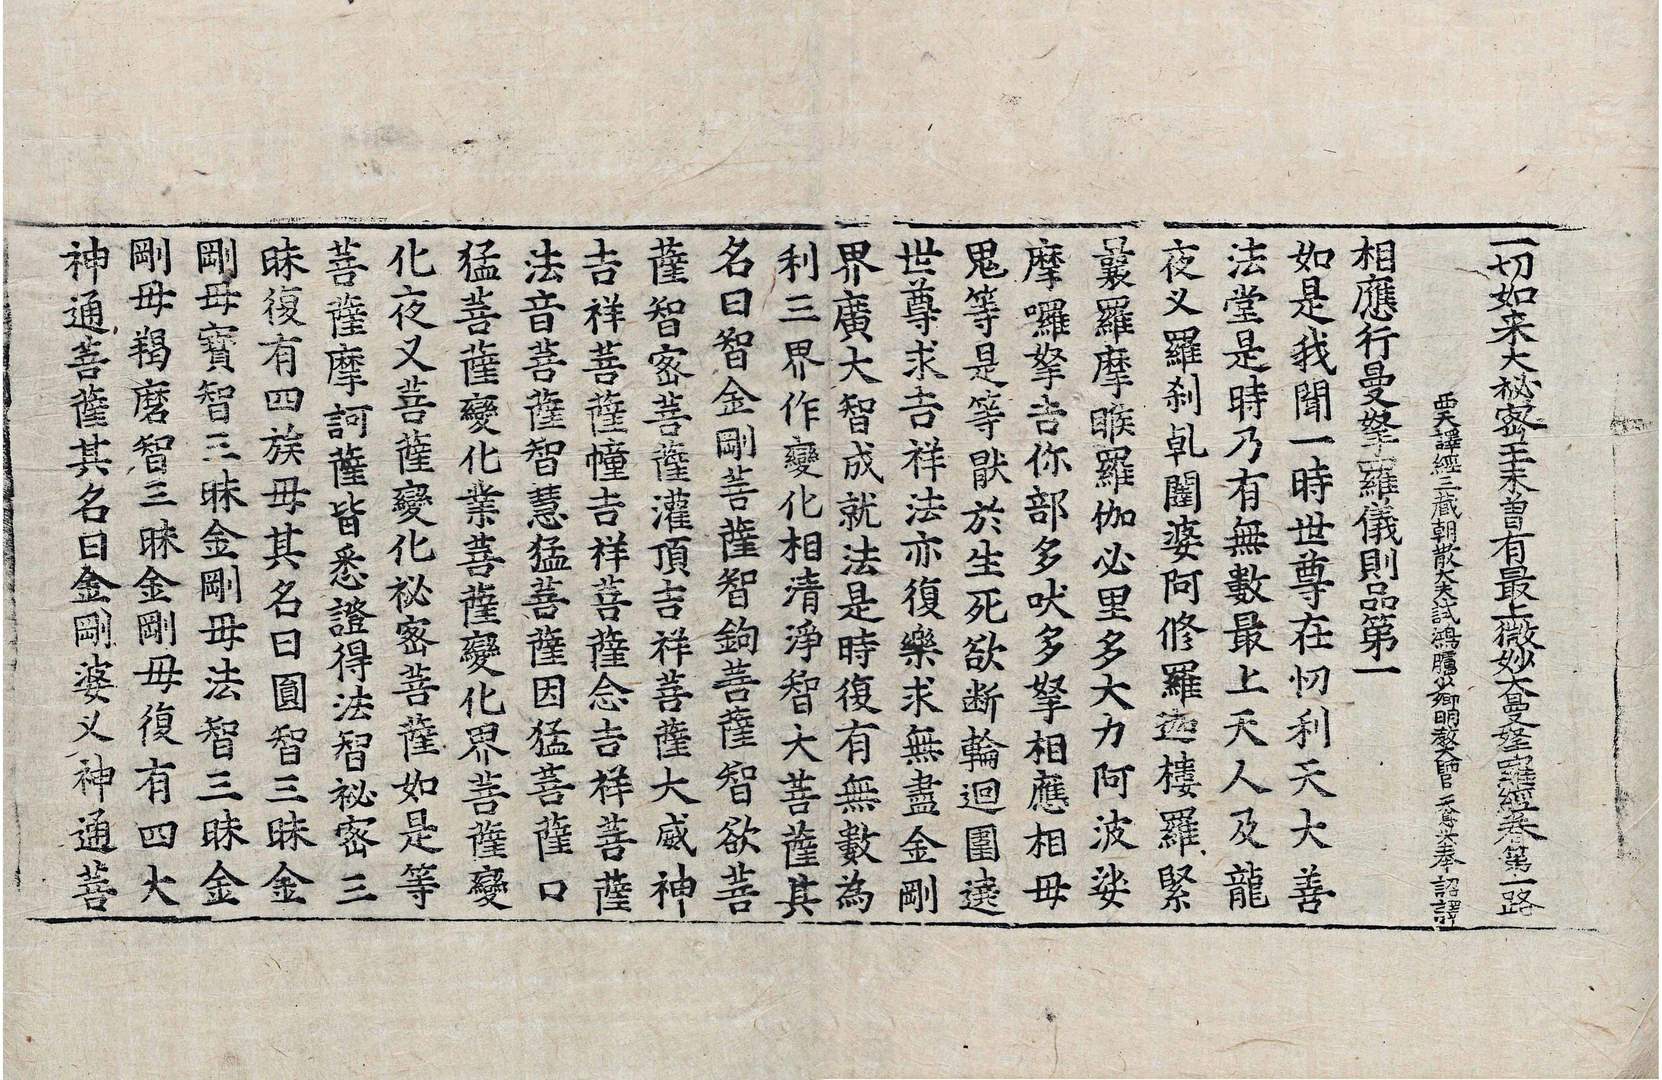 一切如来大秘密王未曽有最上微妙大曼拏羅經卷第一 路
西天譯經三藏朝散大夫試鴻臚少卿明教大師臣天息災奉 詔譯
相應行曼拏羅儀則品第一
如是我聞一時世尊在忉利天大善
法堂是時乃有無數最上天人及龍
夜叉羅刹乹闥婆阿修羅迦樓羅緊
曩羅摩睺羅伽必里多大力阿波娑
摩囉拏吉你部多吠多拏相應相毋
鬼等是等猒於生死欲断輪迴圍遶
世尊求吉祥法亦復樂求無盡金剛
界廣大智成就法是時復有無數為
利三界作變化相清淨智大菩薩其
名曰智金剛菩薩智鉤菩薩智欲菩
薩智密菩薩灌頂吉祥菩薩大威神
吉祥菩薩幢吉祥菩薩念吉祥菩薩
法音菩薩智慧猛菩薩因猛菩薩口
猛菩薩變化業菩薩變化界菩薩變
化夜叉菩薩變化祕密菩薩如是等
菩薩摩訶薩皆悉證得法智祕密三
昧復有四族毋其名曰圓智三昧金
剛毋寶智三昧金剛毋法智三昧金
剛毋羯磨智三昧金剛毋復有四大
神通菩薩其名曰金剛婆叉神通菩